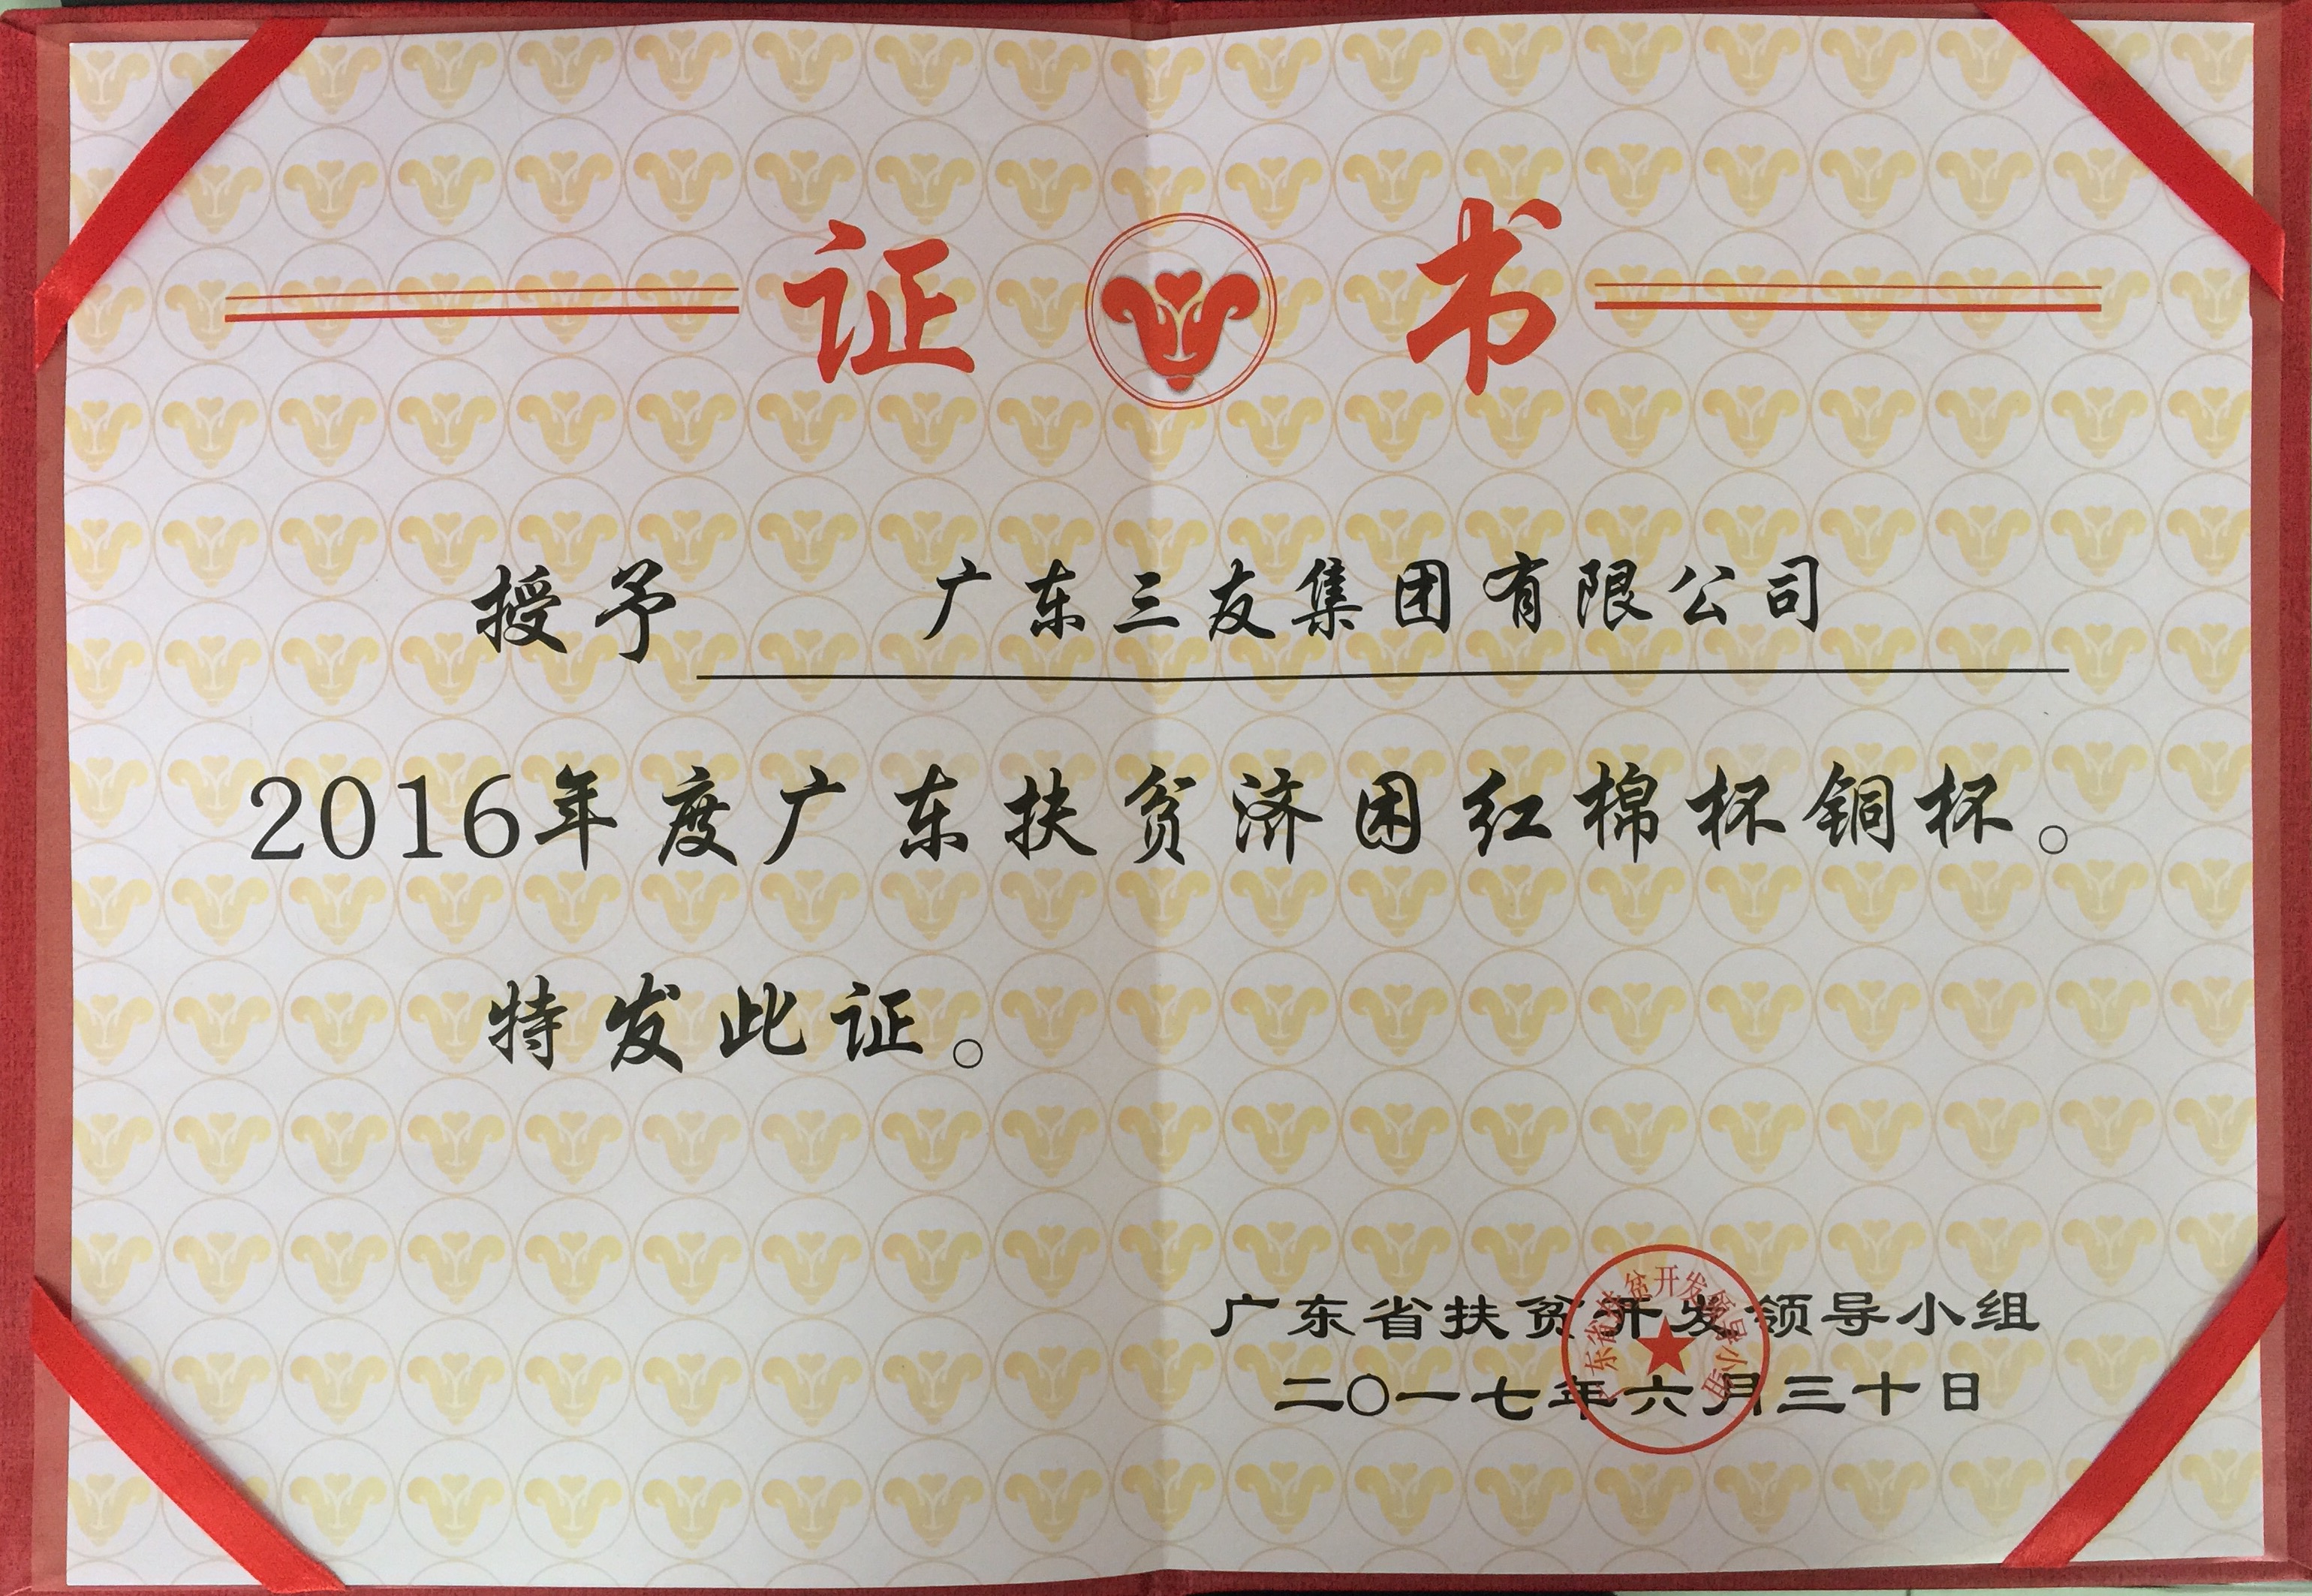 证书
授予 广东三友集团有限公司
2016年度广东扶贫济困红棉杯铜杯。
特发此证。
广东省扶贫开发领导小组
二〇一七年六月三十日
广东省扶贫开发领导小组